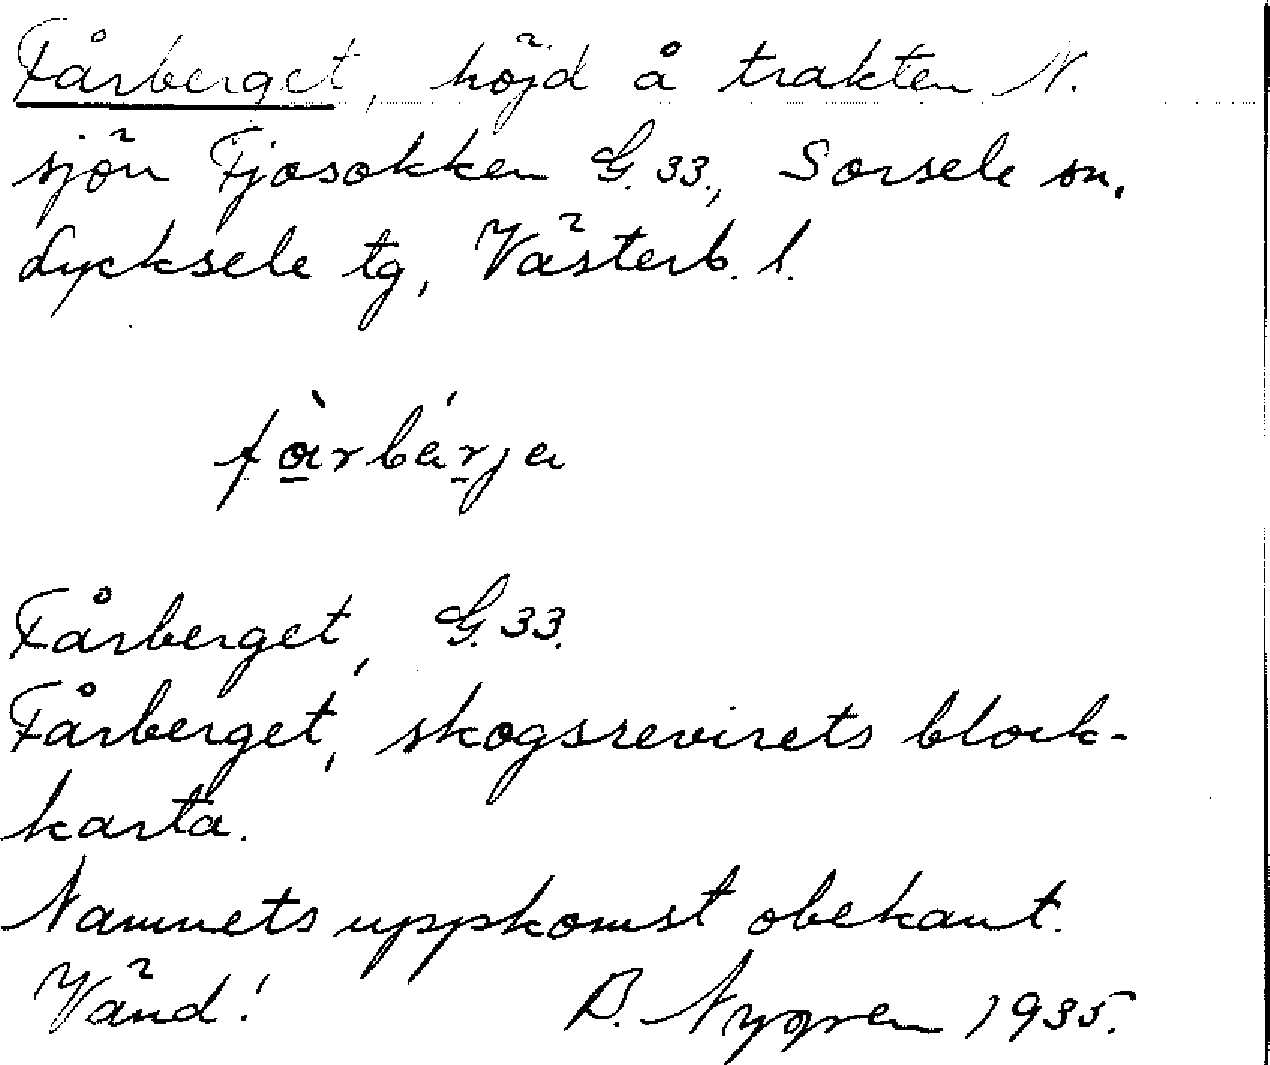 Fårberget, höjd å trakten N.
sjön Fjosokken G.33., Sorsele sn.
Lycksele tg, Västerb. l.
fàrbárja
Fårberget, G.33.
Fårberget, skogsrevirets block-
karta.
Namnets uppkomst obekant.
Vänd! B. Nygren 1935.